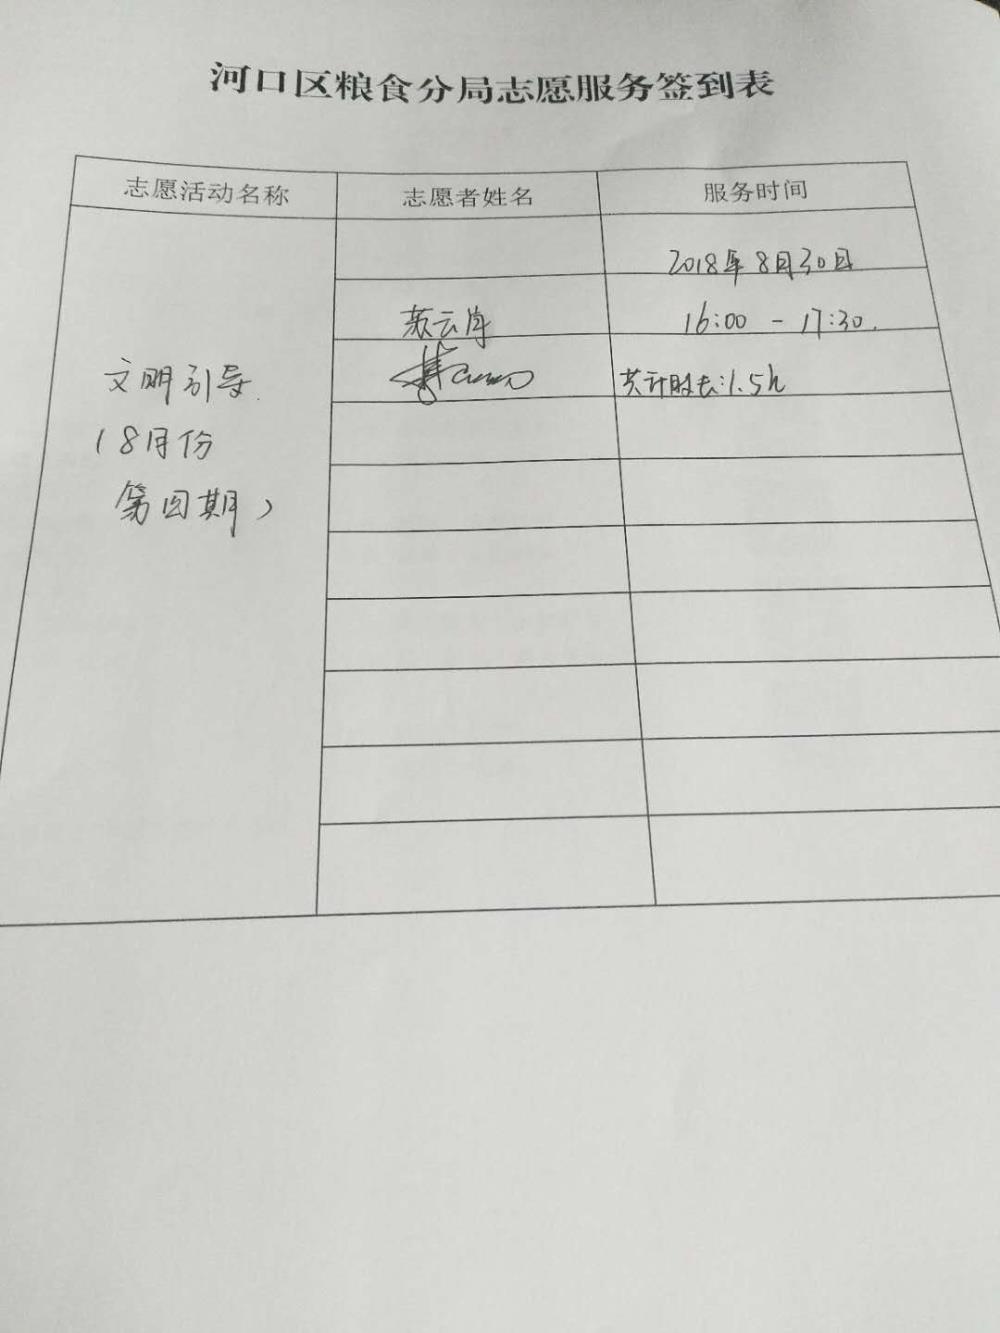 河口区粮食分局志愿服务签到表
志愿活动名称 志愿者姓名 服务时间
2018年8月30日
16:00 - 17:30.
共计时长:1.5h
文明引导.
(8月份
第四期)